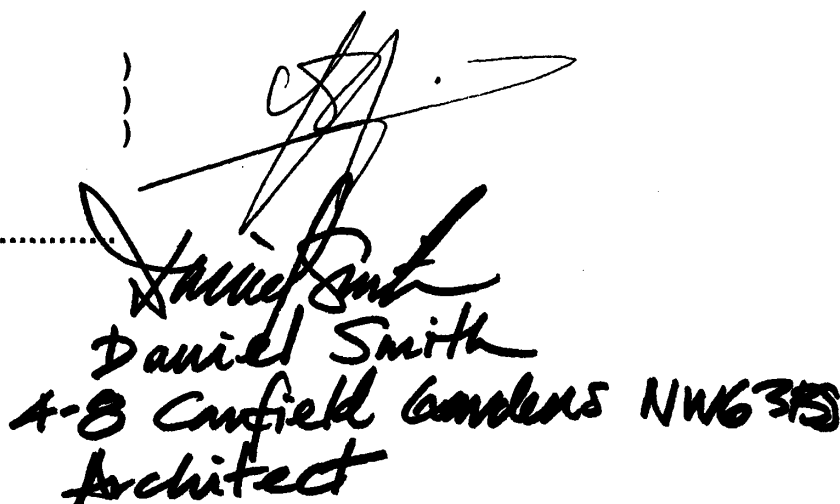 )
)
)
....................
Daniel Smith
Daniel Smith
4-8 Canfield Gardens NW6 3BS
Architect